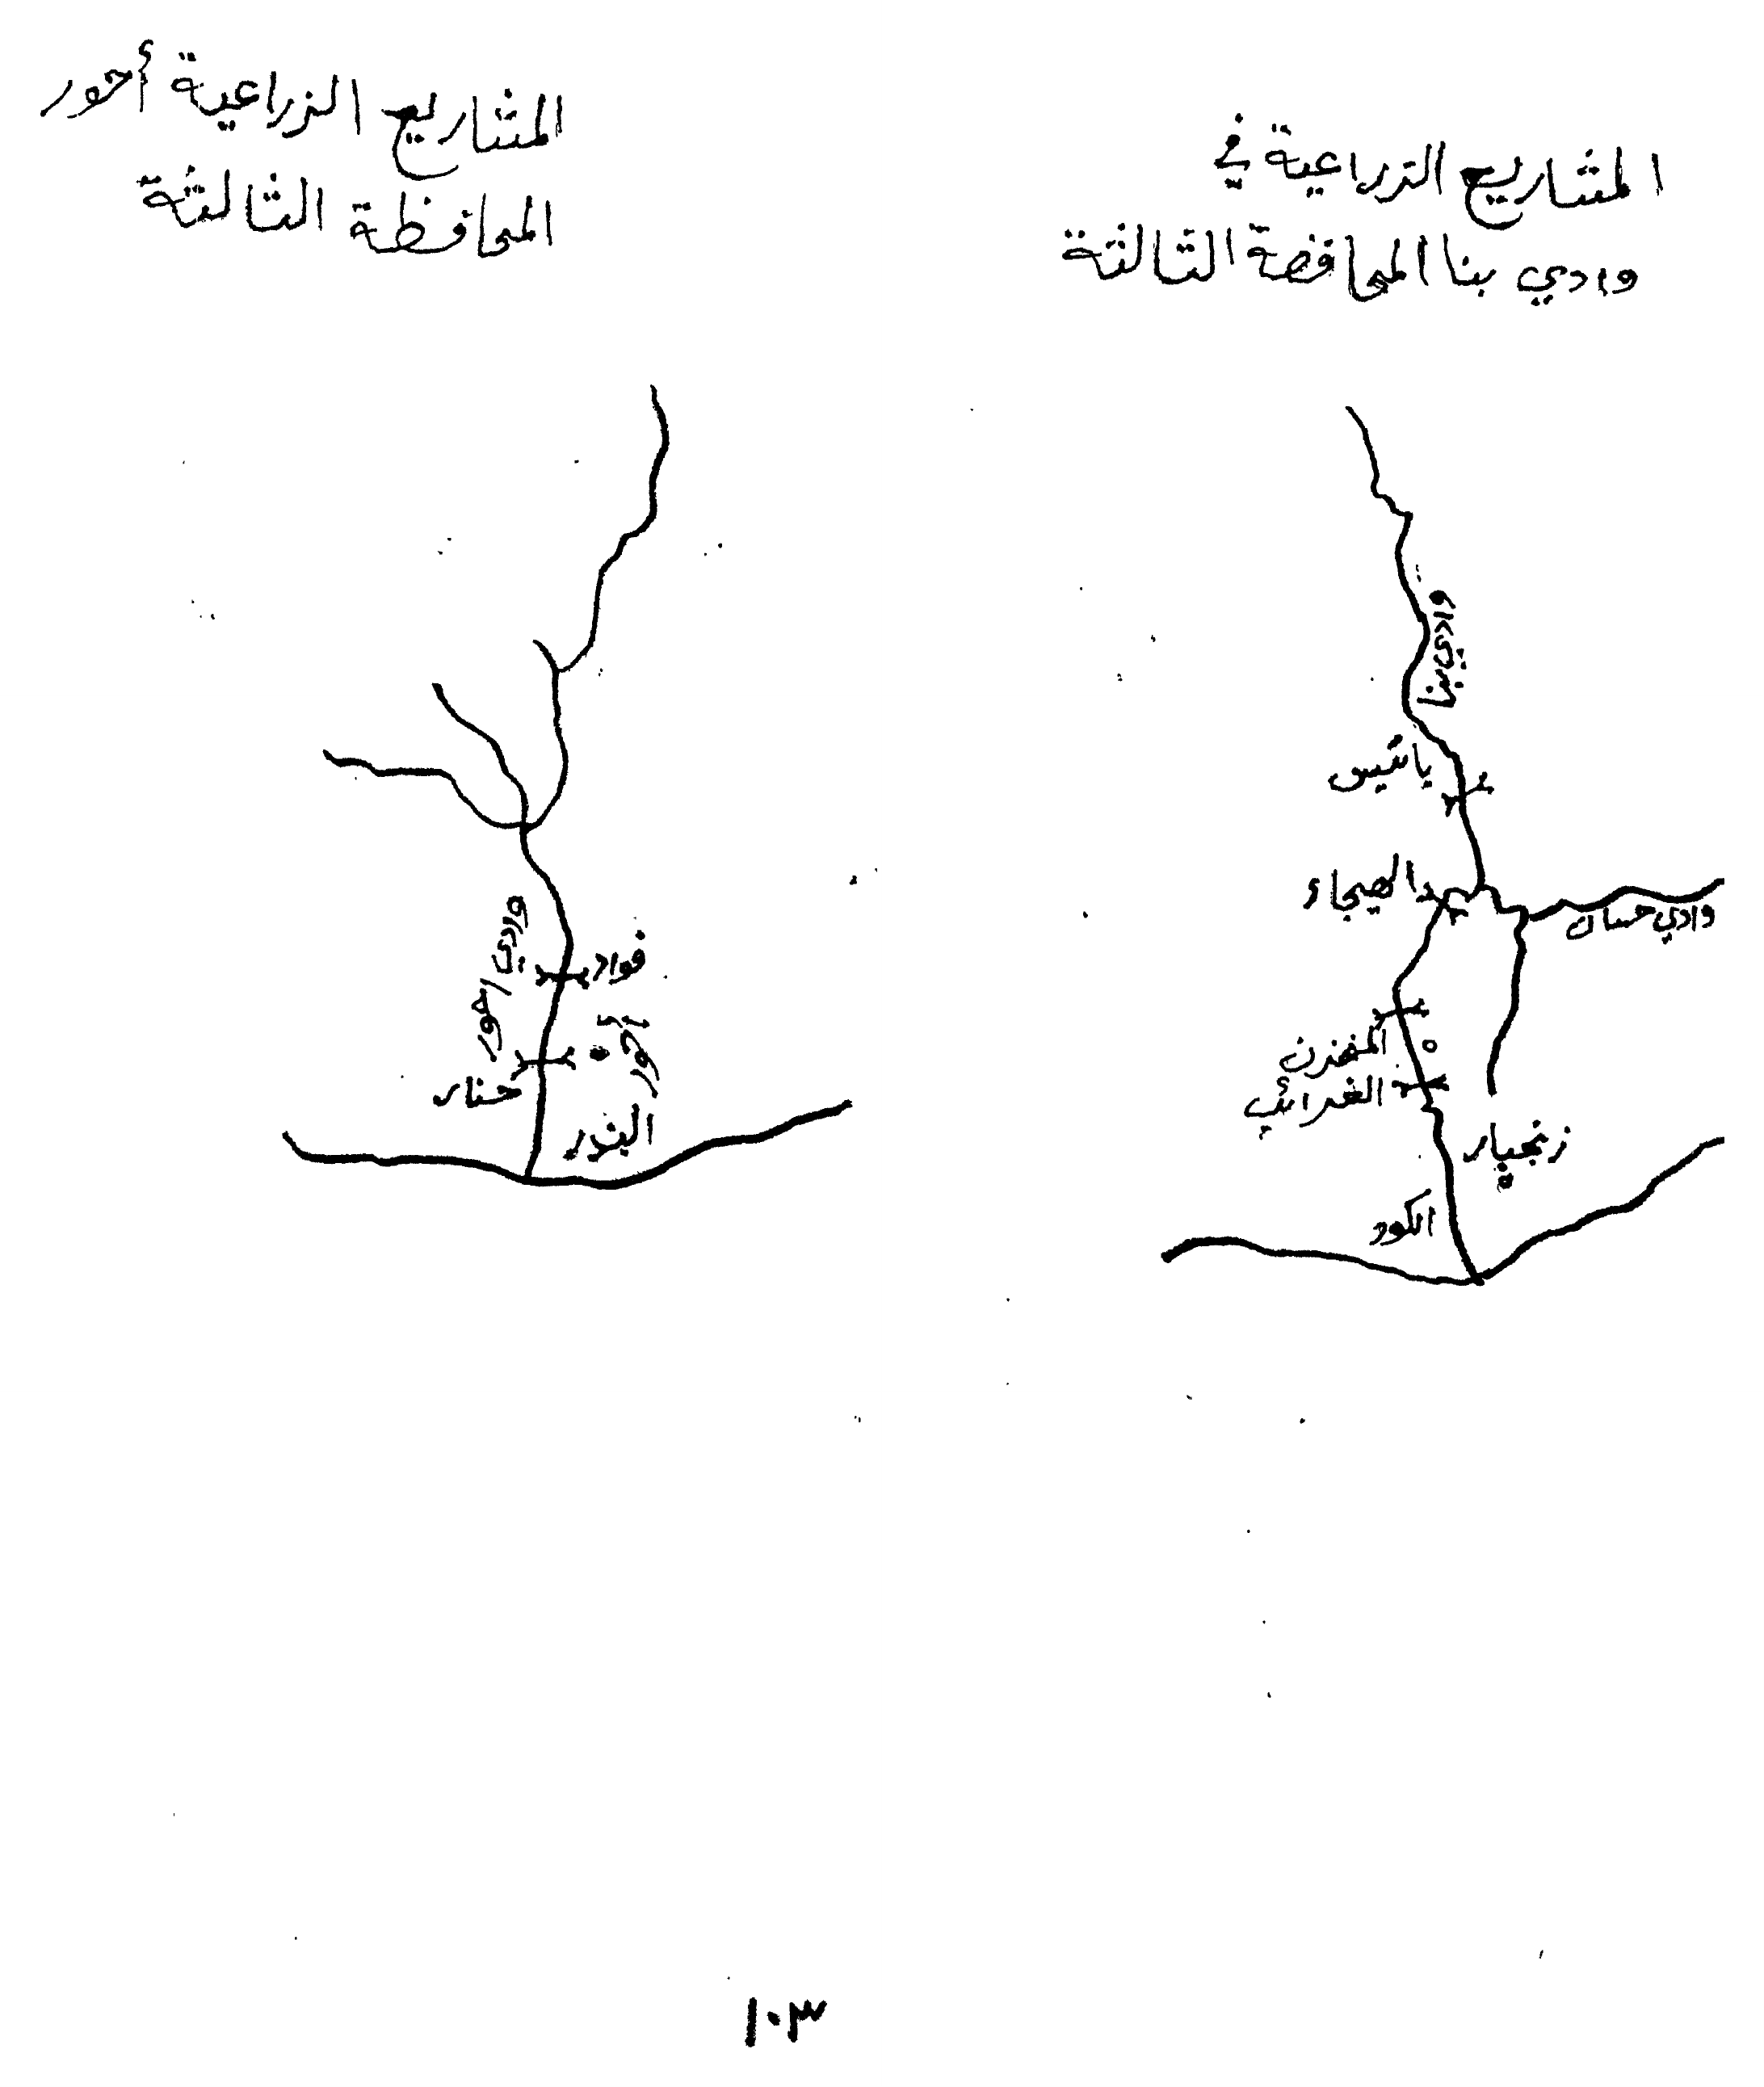 المشاريع الزراعية في
وادي بنا المحافضة الثالثة
وادي بنا
باتيس
الهيجاء
وادي حسان
المخزن
الغرائب
زنجبار
الكود
المشاريع الزراعية أحور
المحافظة الثالثة
وادي احور
فواد
حناد
١٠٣